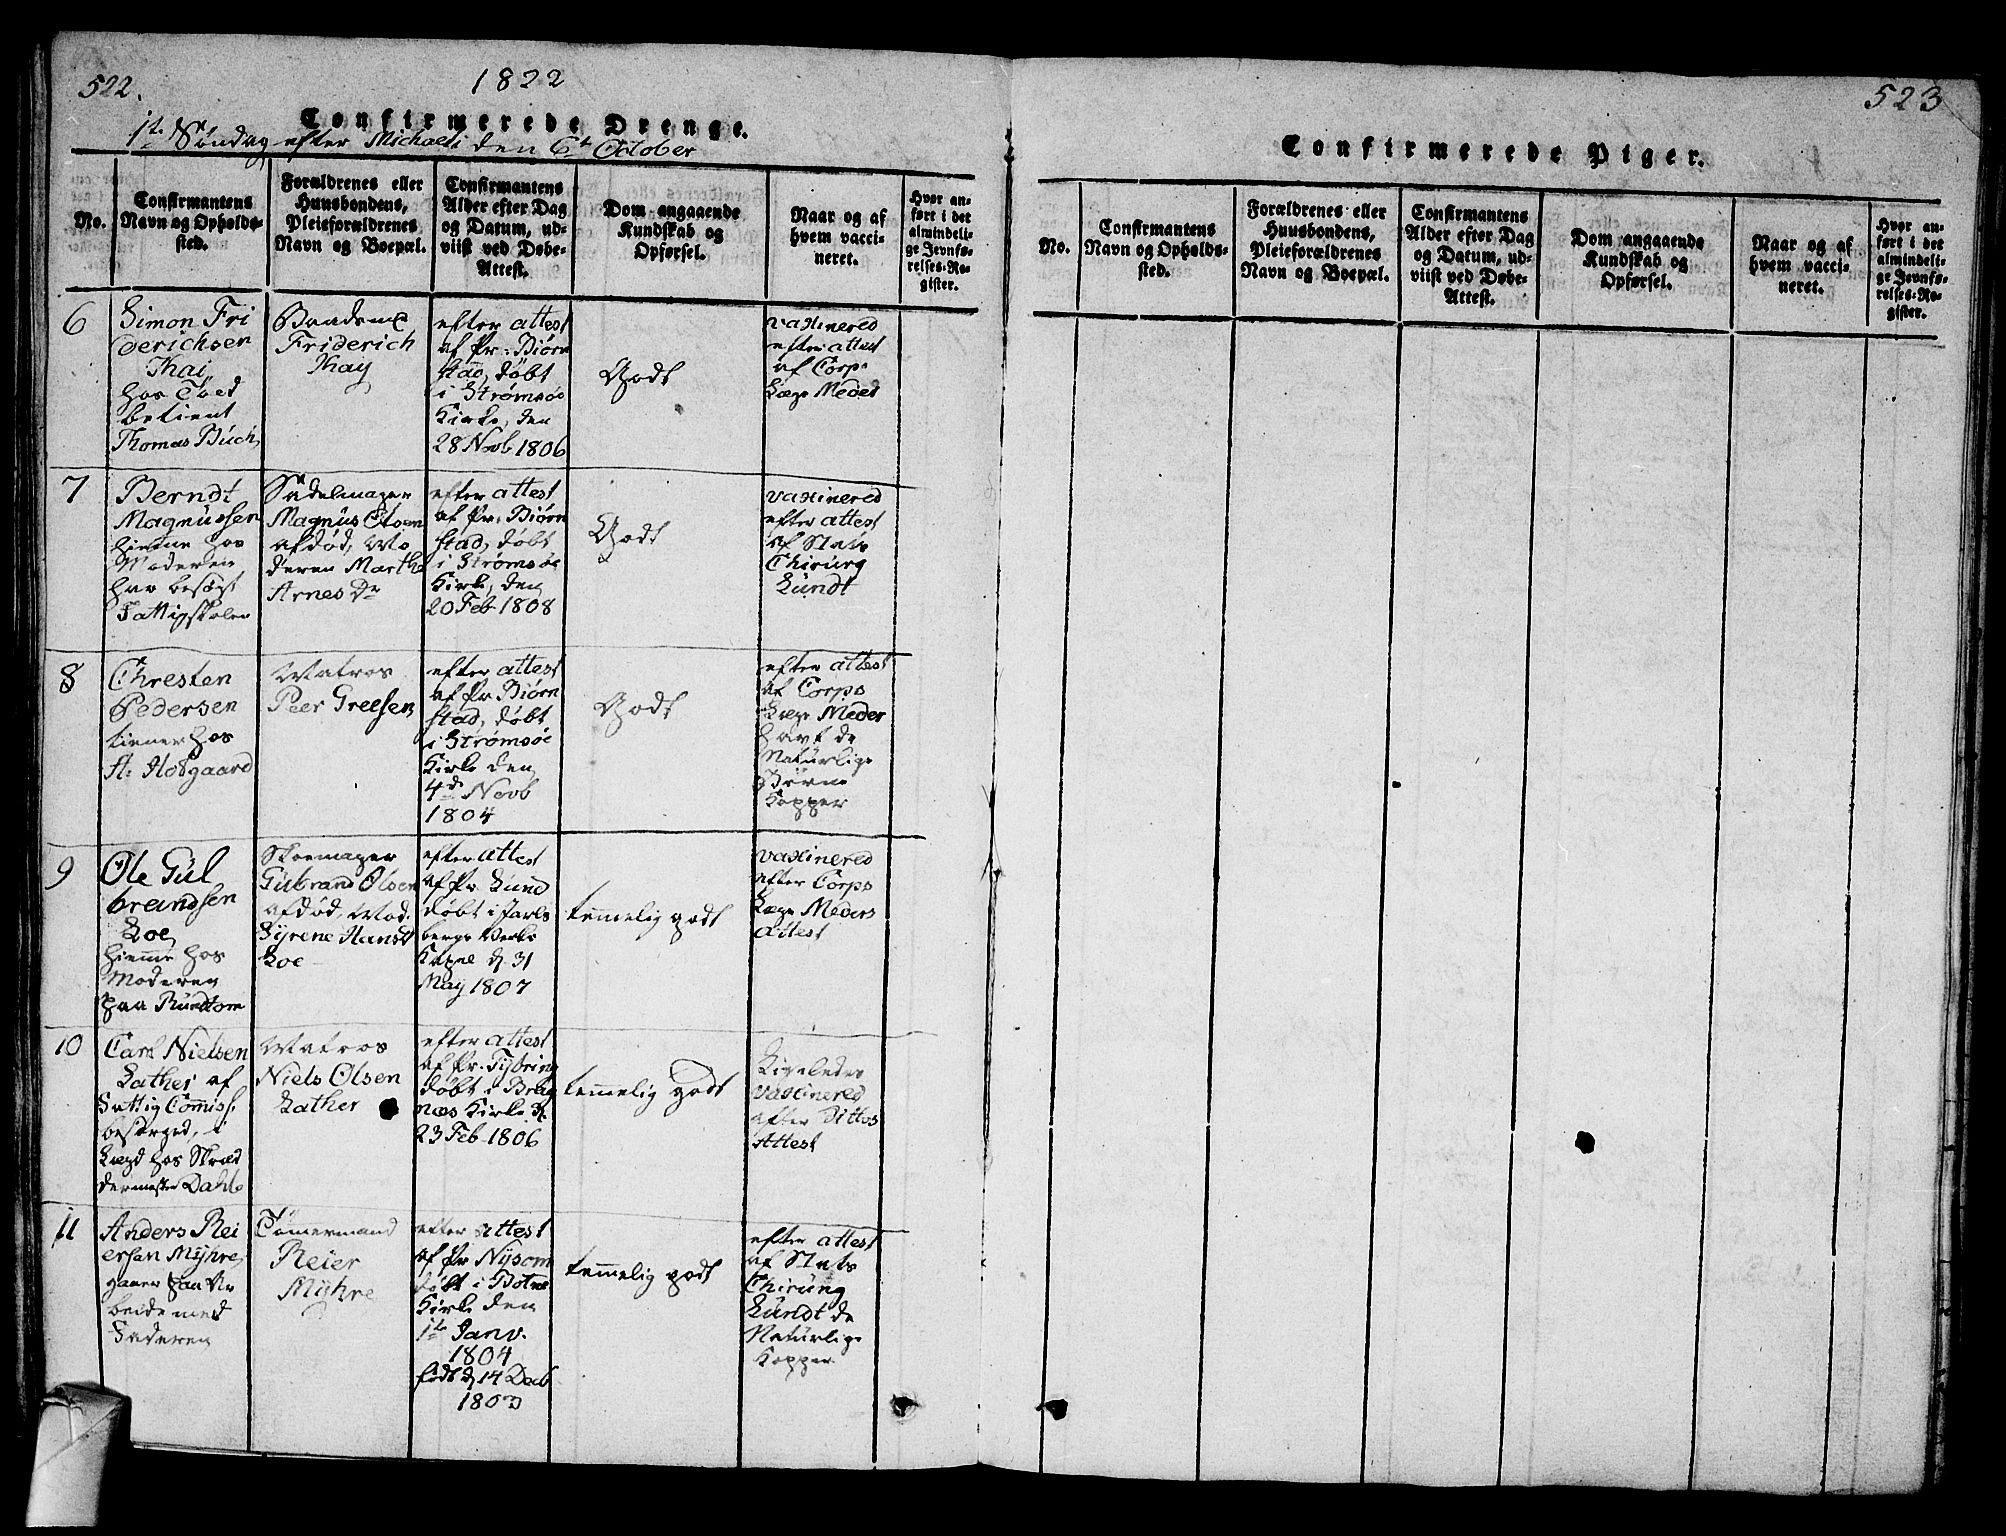 522.
1822
Confirmerede Drenge.
1te Søndag efter Michaeli den 6te October
No.
Confirmantens
Navn og Opholds-
sted.
Forældrenes eller
Huusbondens,
Pleieforældrenes
Navn og Boepæl.
Confirmantens
Alder efter Dag
og Datum, ud-
viist ved Døbe-
Attest.
Dom angaaende
Kundskab og
Opførsel.
Naar og af
hvem vacci-
neret.
Hvor an-
ført i det
almindeli-
ge Jevnfø-
relses-Re-
gister.
6
Simon Fri
derichsen
Thai,
hos Toed
betient
Thomas Buch,
Friderich
Thay
efter attest
af Pr: Biørn
stad, døbt
i Strømsøe
Kirke, den
28 Novb 1806
Godt
vaxinered
efter attest
af Corps
Læge Meder
7
Berndt
Magnussen
hiemme hos
Moderen
har besøgt
Fattigskolen
Sadelmager
Magnus Olsen
afdød, Mo
deren Marthe
Arnes Dr
efter attest
af Pr: Biørn
stad, døbt
i Strømsøe
Kirke, den
20 Feb 1808
Godt
vaxinered
efter attest
af Stats
Chirurg
Lundt
8
Chresten
Pedersen
tiener hos
A: Hofgaard
Matros
Peer Greesen
efter attest
af Pr Biørn
stad, døbt
i Strømsøe
Kirke den
4de Novb
1804
Godt
efter attest
af Corps
Læge Meder
havt de
Naturlige
Børne
Kopper
9
Ole Gul
brandsen
Loe,
hiemme hos
Moderen
paa Rundtom
Skoemager
Gulbrand Olsen
afdød, Mod.
Syrene Hansd
Loe
efter attest
af Pr Lund
døbt i Jarls
bergs Verks
Kapel d. 31
May 1807
temmelig godt
vaxinered
efter Corps
Læge Meders
attest
10
Carl Nielsen
Lather af
Fattig Commiss.
besørged, i
Lægd hos Skræd
dermester Dahl
Matros
Niels Olsen
Lather
efter attest
af Pr. Tybring
døbt i Brag
næs Kirke d.
23 Feb 1806
temmelig godt
Ligeledes
vaxinered
efter Dittos
Attest
11
Anders Rei
ersen Myhre,
gaaer paa Ar
beide med
Faderen
Tømermand
Reier
Myhre
efter attest
af Pr Nysom
døbt i Botne
Kirke den
1te Janv.
1804
født d 14 Decb
1803
temmelig godt
efter attest
af Stats
Chirurg
Lundt de
Naturlige
Kopper
523
Confirmerede Piger.
No.
Confirmantens
Navn og Opholds-
sted.
Forældrenes eller
Huusbondens,
Pleieforældrenes
Navn og Boepæl.
Confirmantens
Alder efter Dag
og Datum, ud-
viist ved Døbe-
Attest.
Dom angaaende
Kundskab og
Opførsel.
Naar og af
hvem vacci-
neret.
Hvor an-
ført i det
almindeli-
ge Jevnfø-
relses-Re-
gister.